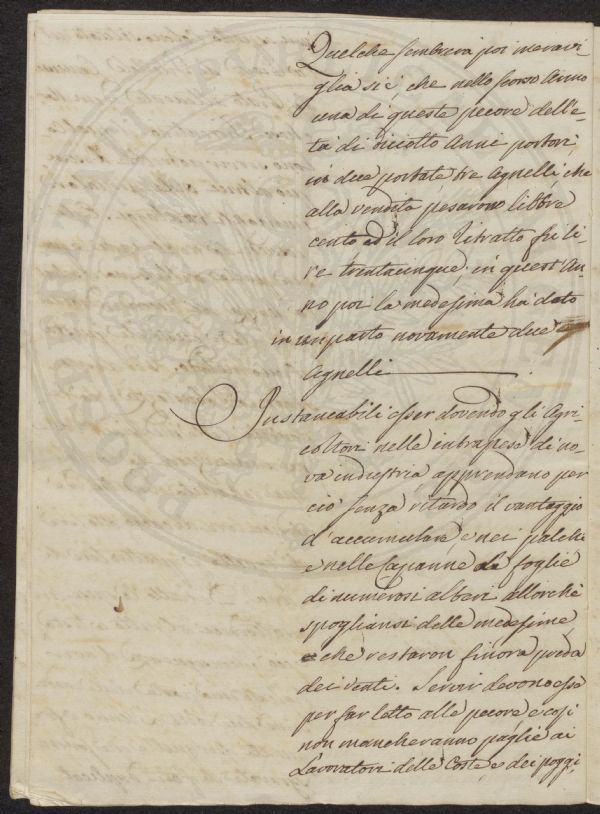 Quelche sembrerà poi meravi-
glia si è, che nello scorso Anno
una di queste pecore dell'e-
tà di diciotto Anni portori
in due portate tre Agnelli, che
alla vendita pesarono libbre
cento ed il loro ritratto fu li-
re trentacinque; in quest'An-
no poi la medesima ha dato
in un parto novamente due
Agnelli
Instancabili esser dovendo gli Agri-
coltori nelle intraprese di no-
va industria, apprendano per
ciò senza ritardo il vantaggio
d'accumulare, e nei palchi
e nelle capanne le foglie
di numerosi alberi allorchè
spogliansi delle medesime
che restaron finora preda
dei venti. Servir devono esse
per far letto alle pecore e così
non mancheranno paglie ai
Lavoratori delle Coste, e dei poggi,